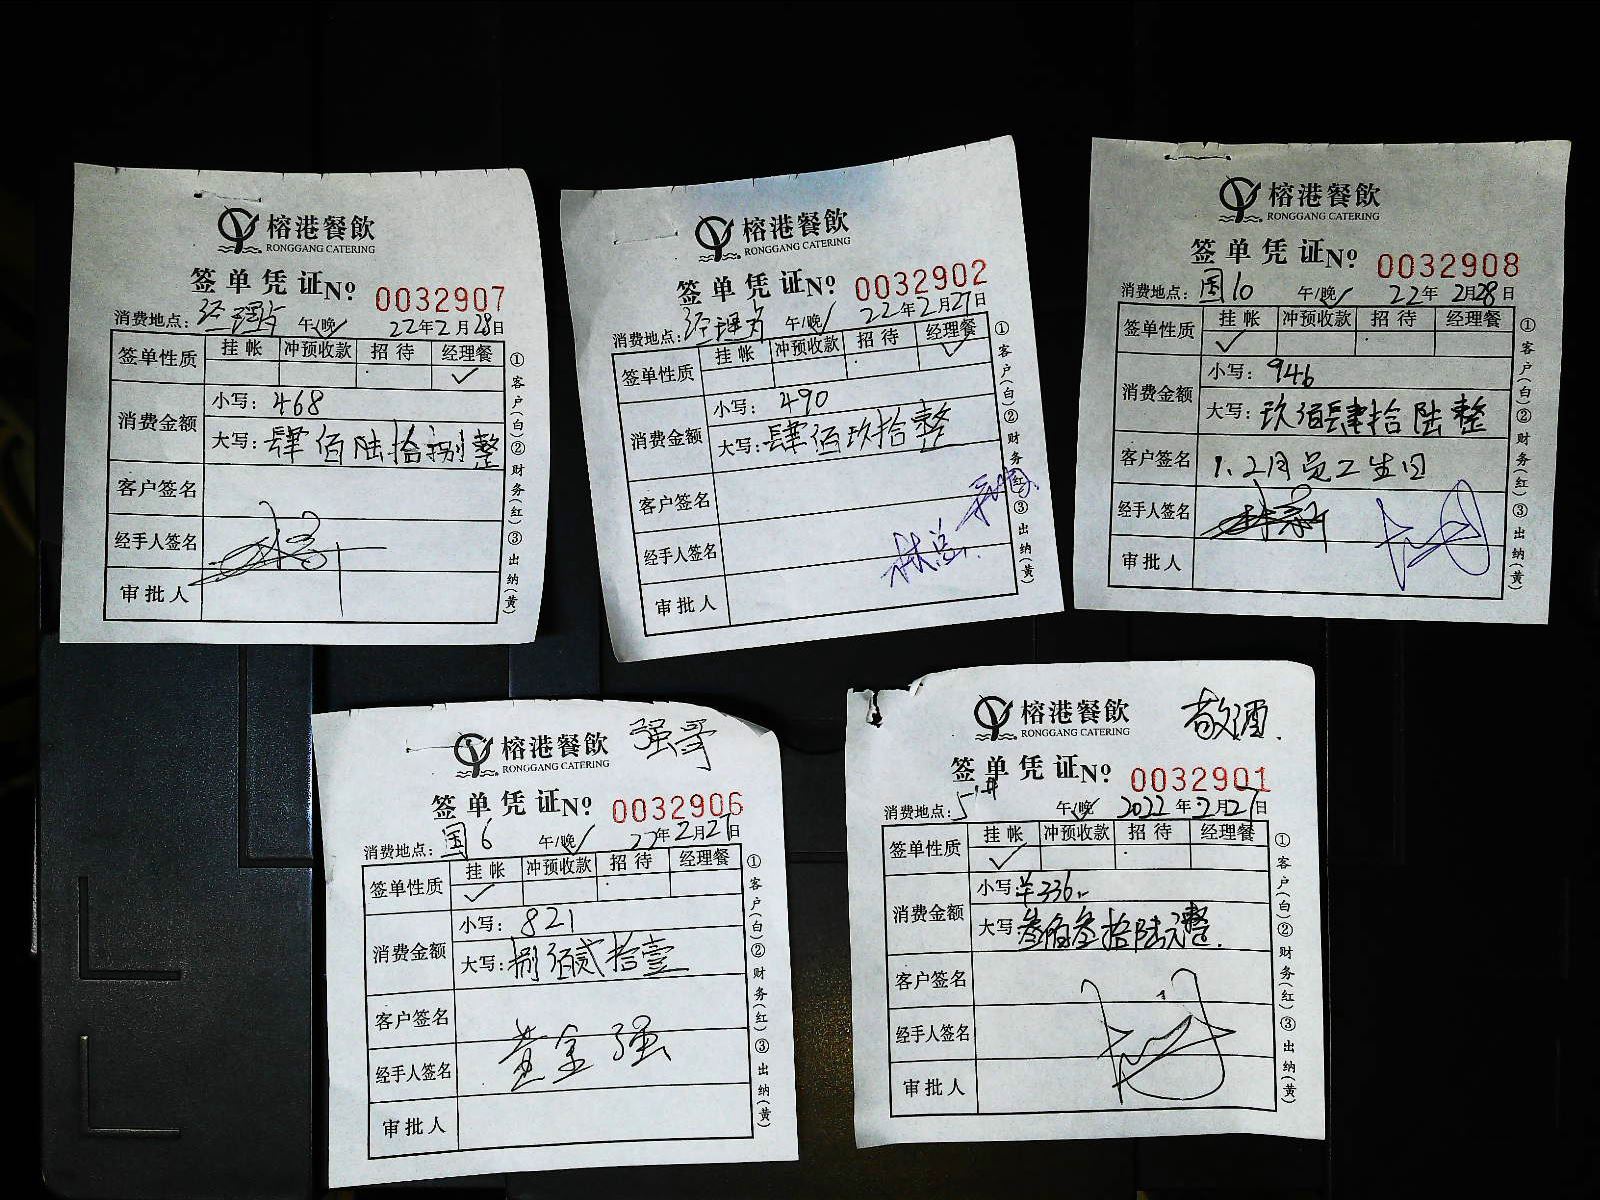 榕港餐飲
RONGGANG CATERING
签单凭证№ 0032907
消费地点: 经理 午/晚 22年2月28日
签单性质 挂帐 冲预收款 招待 经理餐
✓
消费金额 小写: 468
大写: 肆佰陆拾捌整
客户签名
经手人签名
审批人
①客户(白)②财务(红)③出纳(黄)
榕港餐飲
RONGGANG CATERING
签单凭证№ 0032902
消费地点: 经理 午/晚 22年2月27日
签单性质 挂帐 冲预收款 招待 经理餐
✓
消费金额 小写: 490
大写: 肆佰玖拾整
客户签名
经手人签名 林总
审批人
①客户(白)②财务(红)③出纳(黄)
榕港餐飲
RONGGANG CATERING
签单凭证№ 0032908
消费地点: 国10 午/晚 22年2月28日
签单性质 挂帐 冲预收款 招待 经理餐
✓
消费金额 小写: 946
大写: 玖佰肆拾陆整
客户签名 1、2月员工生日
经手人签名
审批人
①客户(白)②财务(红)③出纳(黄)
强哥
榕港餐飲
RONGGANG CATERING
签单凭证№ 0032906
消费地点: 国6 午/晚 22年2月27日
签单性质 挂帐 冲预收款 招待 经理餐
✓
消费金额 小写: 821
大写: 捌佰贰拾壹
客户签名
经手人签名 黄金强
审批人
①客户(白)②财务(红)③出纳(黄)
敬酒.
榕港餐飲
RONGGANG CATERING
签单凭证№ 0032901
消费地点: 5# 午/晚 2022年2月27日
签单性质 挂帐 冲预收款 招待 经理餐
✓
消费金额 小写 ¥336
大写 叁佰叁拾陆元整.
客户签名
经手人签名
审批人
①客户(白)②财务(红)③出纳(黄)